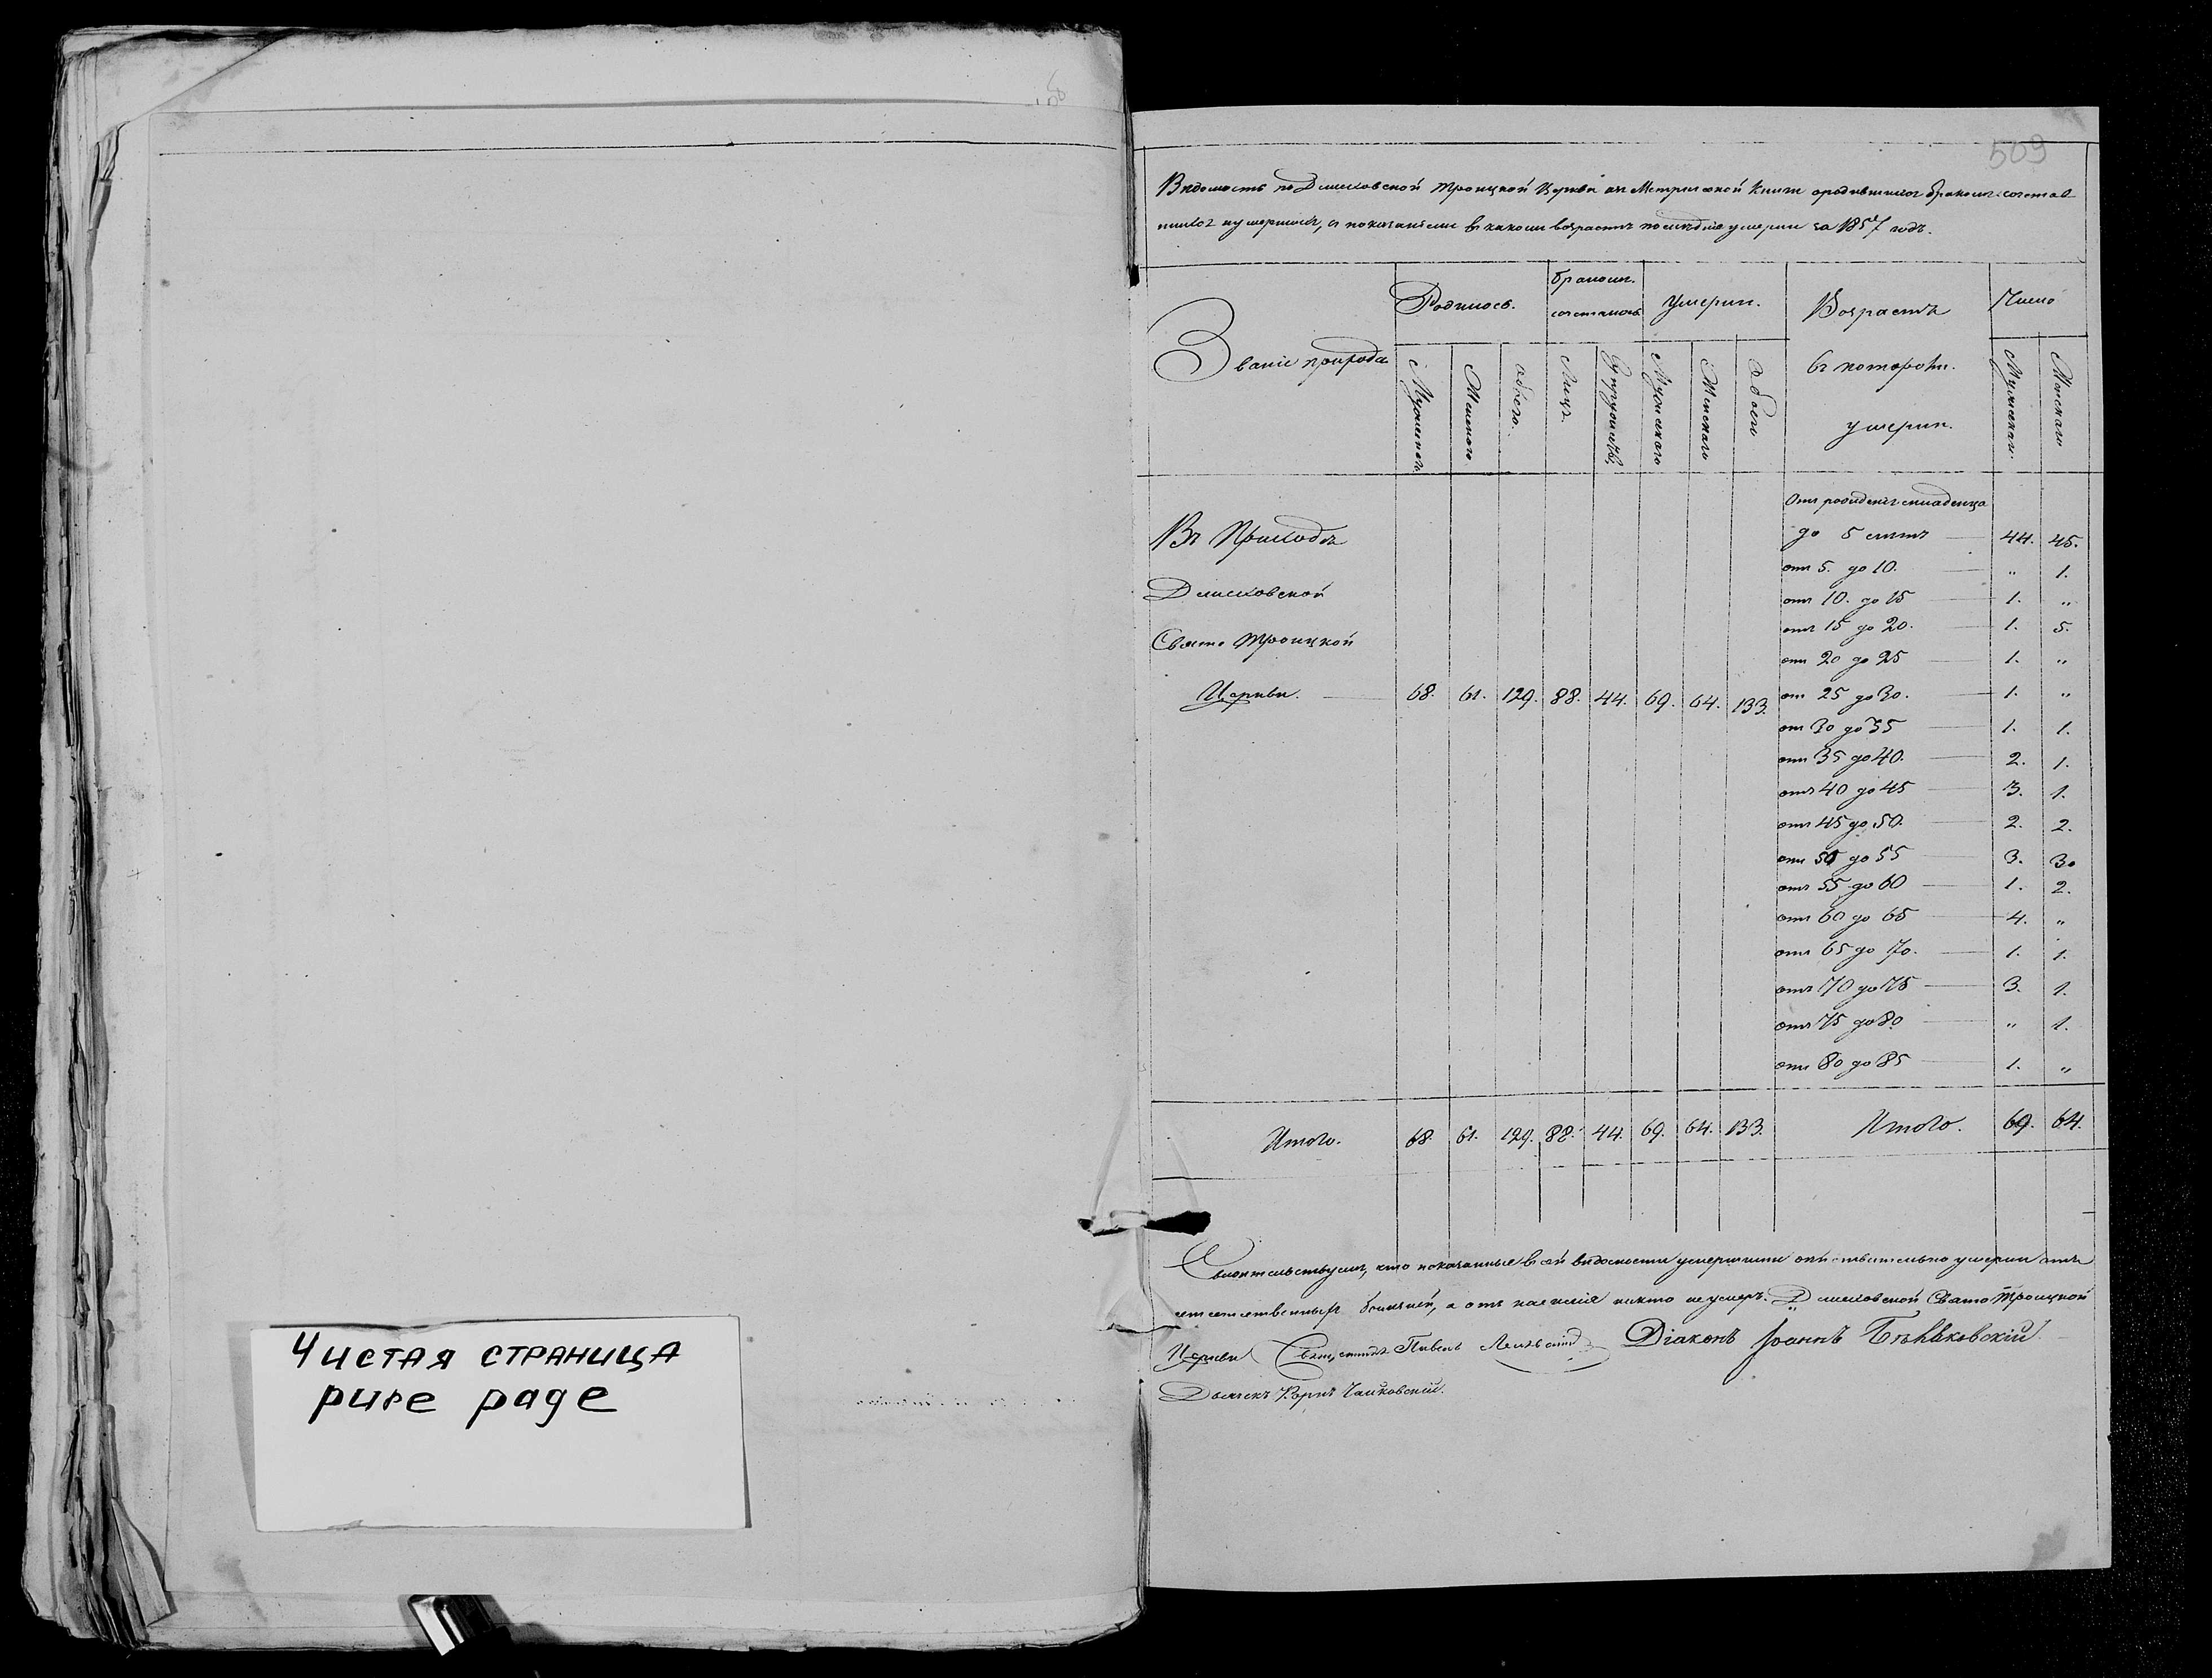 Чистая страница
pure page
509
Вѣдомость по Троицкой Церкви къ Метрической Книгѣ о родившихся бракомъ сочетав
шихся и умершихъ, съ показаніемъ въ какомъ возрастѣ послѣдніе умерли за 1857 годъ.
Званіе прихода
Родилось.
Бракомъ.
сочеталось
Умерли.
Возрастъ
въ которомъ.
умерли.
Число
Мужескаго
Женскаго
обоего.
Лицъ.
Супружествъ.
Мужескаго
Женскаго
Обоего
Мужескаго.
Женскаго
Отъ рожденія младенца
Въ Приходѣ до 5 лѣтъ 44. 45.
отъ 5. до 10. „ 1.
отъ 10. до 15 1. „
отъ 15 до 20. 1. 5.
Свято Троицкой
отъ 20 до 25 1. „
Церкви. 68. 61. 129. 88. 44. 69. 64. 133. отъ 25 до 30. 1. „
отъ 30 до 35 1. 1.
отъ 35 до 40. 2. 1.
отъ 40 до 45 3. 1.
отъ 45 до 50. 2. 2.
отъ 50 до 55 3. 3.
отъ 55 до 60 1. 2.
отъ 60 до 65 4. „
отъ 65 до 70. 1. 1.
отъ 70 до 75 3. 1.
отъ 75 до 80 „ 1.
отъ 80 до 85 1. „
Итого. 68. 61. 129. 88. 44. 69. 64. 133. Итого. 69. 64.
Свидѣтельствуемъ, что показанные въ сей вѣдомости умершими дѣйствительно умерли отъ
естественныхъ болѣзней, а отъ насилія никто не умеръ. Свято Троицкой
Церкви Священникъ Павелъ Діаконъ Іоаннъ
Дьячекъ Чайковскій.